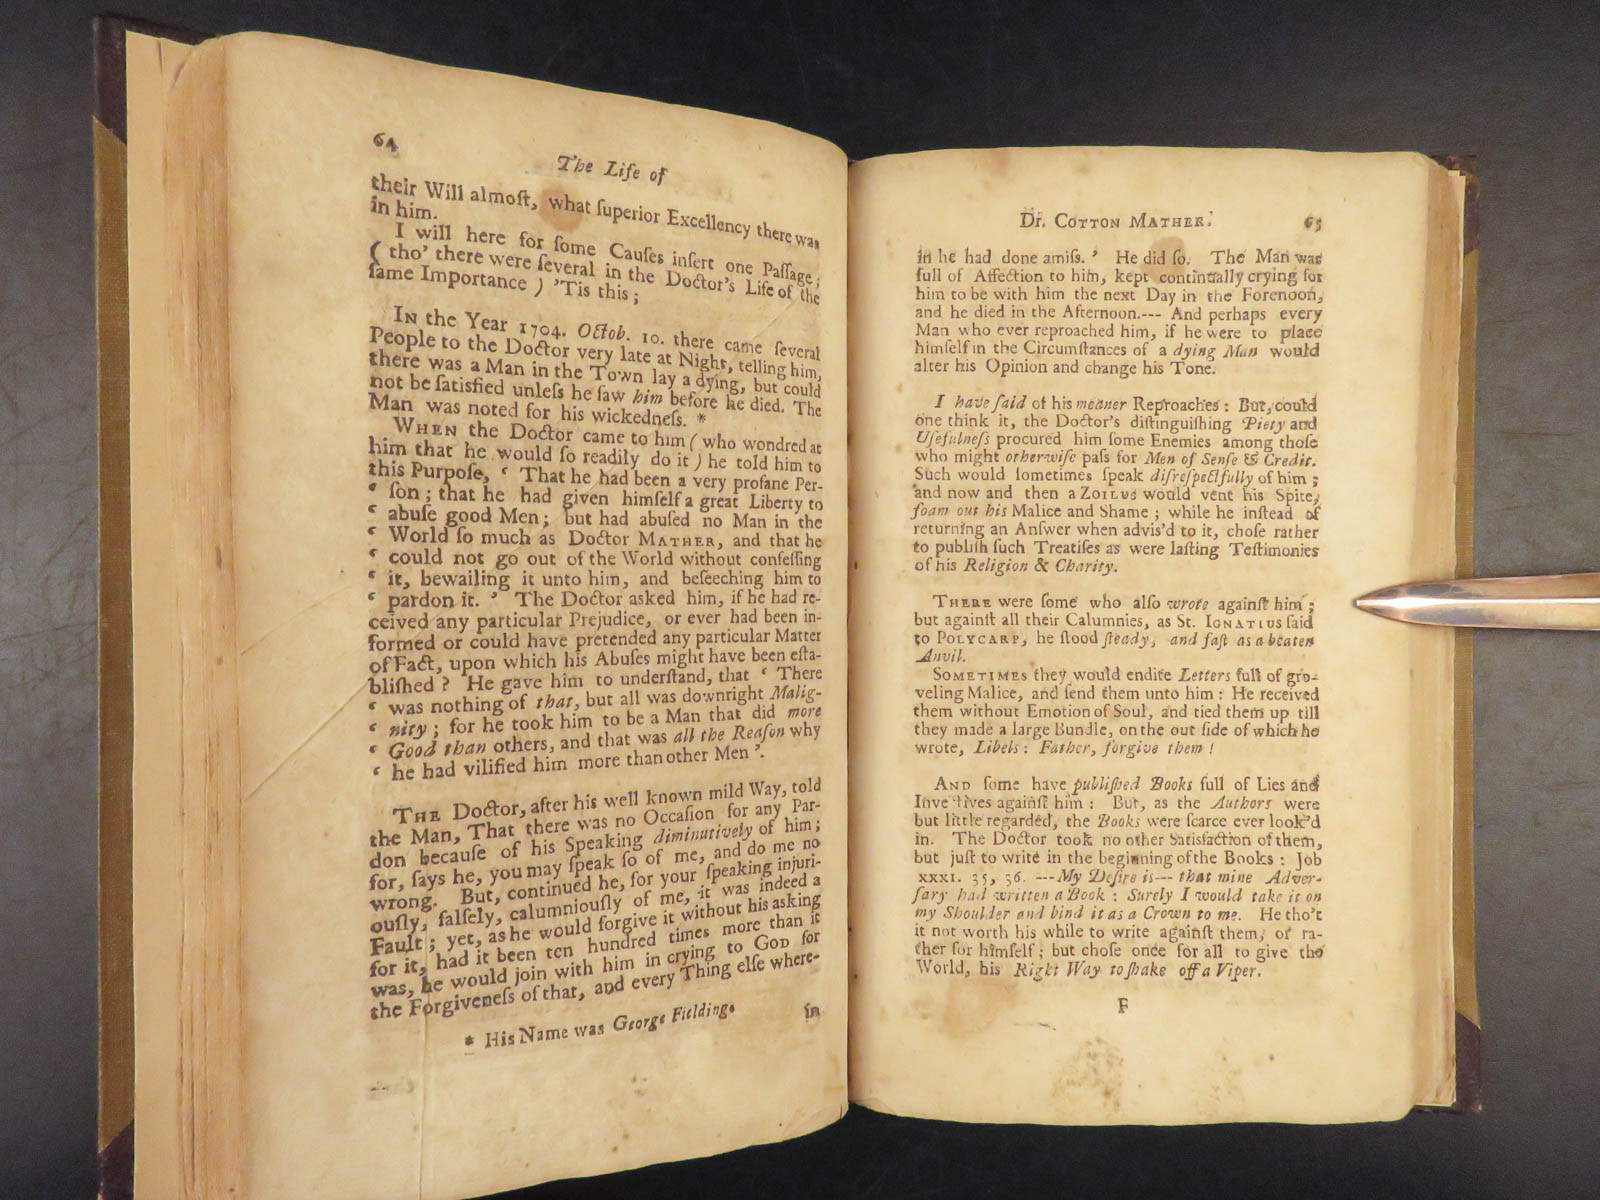 64
The Life of
their Will almoſt, what ſuperior Excellency there was
in him.
I will here for ſome Cauſes inſert one Paſſage;
(tho' there were ſeveral in the Doctor's Life of the
ſame Importance) 'Tis this;
IN the Year 1704. Octob. 10. there came ſeveral
People to the Doctor very late at Night, telling him,
there was a Man in the Town lay a dying, but could
not be ſatisfied unleſs he ſaw him before he died. The
Man was noted for his wickedneſs. *
WHEN the Doctor came to him (who wondred at
him that he would ſo readily do it) he told him to
this Purpoſe, ‘ That he had been a very profane Per-
‘ ſon; that he had given himſelf a great Liberty to
‘ abuſe good Men; but had abuſed no Man in the
‘ World ſo much as Doctor MATHER, and that he
‘ could not go out of the World without confeſſing
‘ it, bewailing it unto him, and beſeeching him to
‘ pardon it. ’ The Doctor asked him, if he had re-
ceived any particular Prejudice, or ever had been in-
formed or could have pretended any particular Matter
of Fact, upon which his Abuſes might have been eſta-
bliſhed? He gave him to underſtand, that ‘ There
‘ was nothing of that, but all was downright Malig-
‘ nity; for he took him to be a Man that did more
‘ Good than others, and that was all the Reaſon why
‘ he had vilified him more than other Men ’.
THE Doctor, after his well known mild Way, told
the Man, That there was no Occaſion for any Par-
don becauſe of his Speaking diminutively of him;
for, ſays he, you may ſpeak ſo of me, and do me no
wrong. But, continued he, for your ſpeaking injuri-
ouſly, falſely, calumniouſly of me, it was indeed a
Fault; yet, as he would forgive it without his asking
for it, had it been ten hundred times more than it
was, he would join with him in crying to GOD for
the Forgiveneſs of that, and every Thing elſe where-
* His Name was George Fielding.
in
Dr. COTTON MATHER.
65
in he had done amiſs. ’ He did ſo. The Man was
full of Affection to him, kept continually crying for
him to be with him the next Day in the Forenoon,
and he died in the Afternoon.--- And perhaps every
Man who ever reproached him, if he were to place
himſelf in the Circumſtances of a dying Man would
alter his Opinion and change his Tone.
I have ſaid of his meaner Reproaches: But, could
one think it, the Doctor's diſtinguiſhing Piety and
Uſefulneſs procured him ſome Enemies among thoſe
who might otherwiſe paſs for Men of Senſe & Credit.
Such would ſometimes ſpeak diſreſpectfully of him;
and now and then a ZOILUS would vent his Spite,
foam out his Malice and Shame; while he inſtead of
returning an Anſwer when advis'd to it, choſe rather
to publiſh ſuch Treatiſes as were laſting Teſtimonies
of his Religion & Charity.
THERE were ſome who alſo wrote againſt him;
but againſt all their Calumnies, as St. IGNATIUS ſaid
to POLYCARP, he ſtood ſteady, and faſt as a beaten
Anvil.
SOMETIMES they would endite Letters full of gro-
veling Malice, and ſend them unto him: He received
them without Emotion of Soul, and tied them up till
they made a large Bundle, on the out ſide of which he
wrote, Libels: Father, forgive them!
AND ſome have publiſhed Books full of Lies and
Invectives againſt him: But, as the Authors were
but little regarded, the Books were ſcarce ever look'd
in. The Doctor took no other Satisfaction of them,
but juſt to write in the beginning of the Books: Job
XXXI. 35, 36. ---My Deſire is--- that mine Adver-
ſary had written a Book: Surely I would take it on
my Shoulder and bind it as a Crown to me. He tho't
it not worth his while to write againſt them, or ra-
ther for himſelf; but choſe once for all to give the
World, his Right Way to ſhake off a Viper.
F